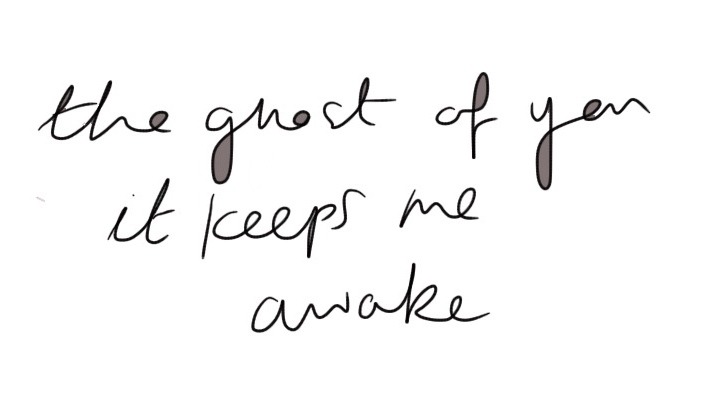 the ghost of you
it keeps me
awake